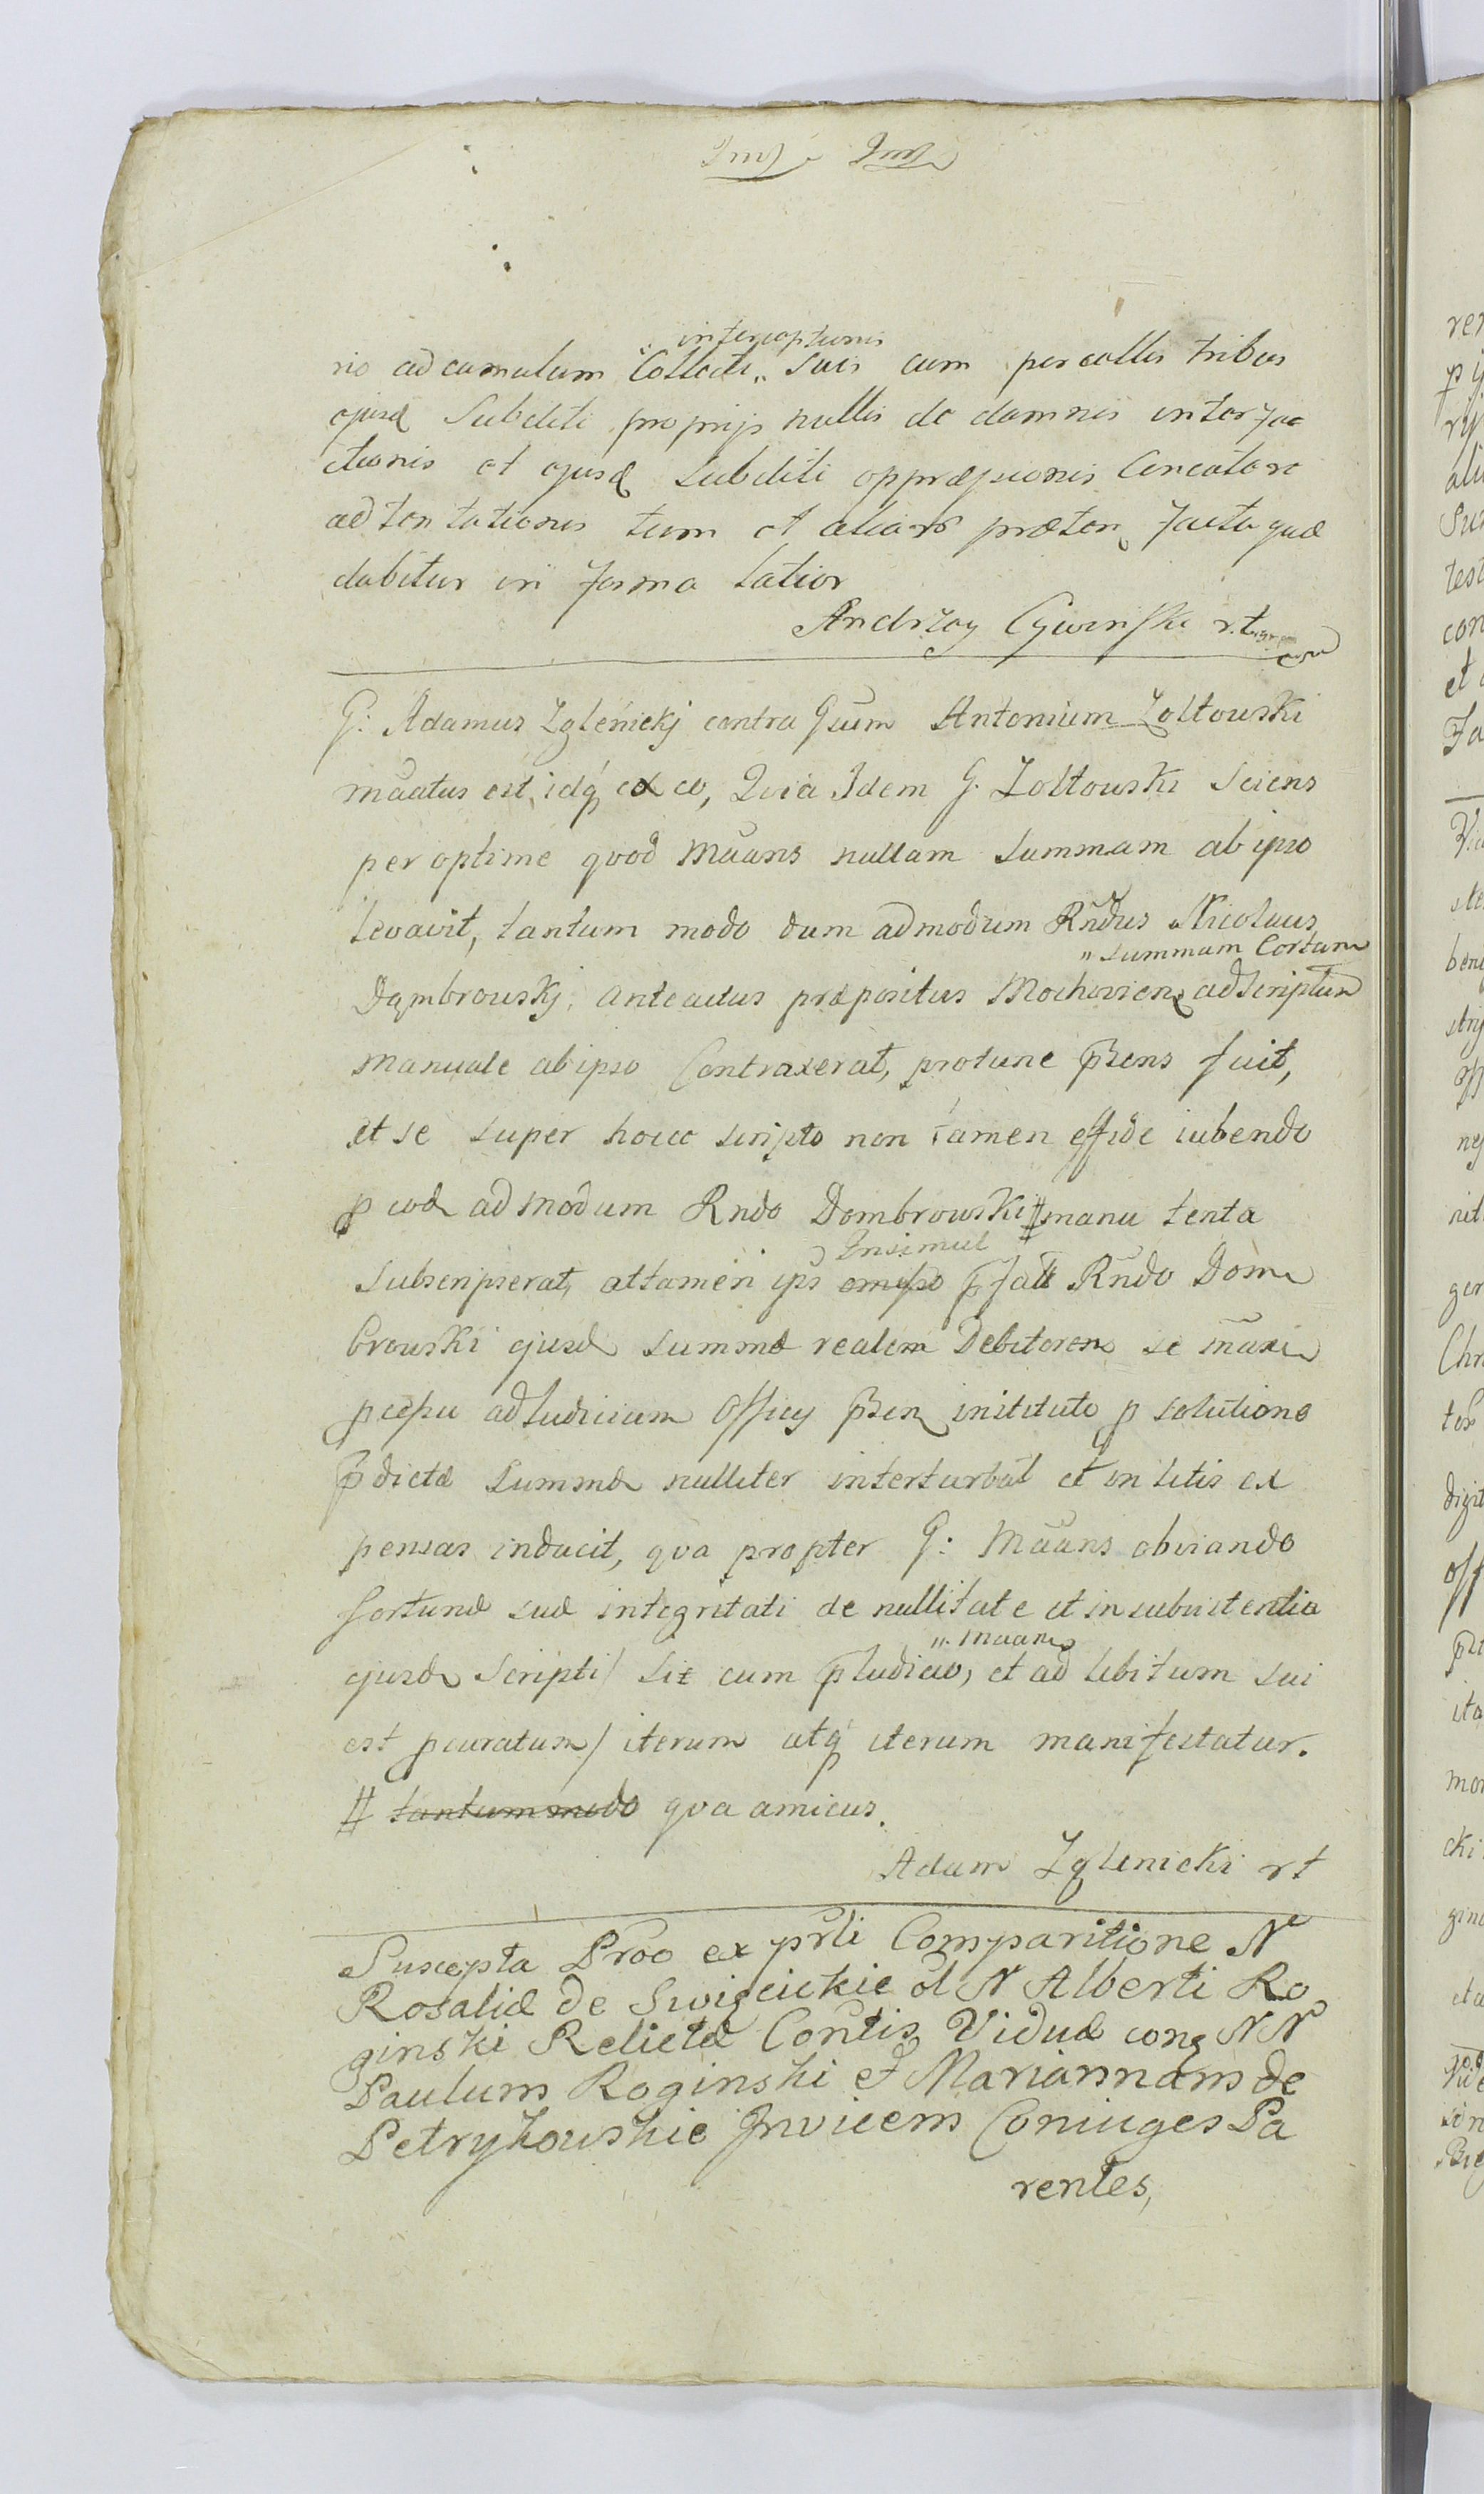 interceptionis
rio ad cumulum Collecti „ suis cum percallis tribus
ejusd Subditi proprijs nullis de damnis interfa
ctionis et ejusd Subditi oppræssionis
adtentationis tum et aliar præten facta quæ
dabitur in forma latior
Andrzey Cywinski
G: Adamus Zglenickj contra Gsum Antonium Zoltowski
mãatus est, idq ex eo, Quia Idem G. Zoltowski Sciens
per optime quod Mãans nullam Summam ab ipso
levavit, tantum modo dum admodum Rndus Nicolaus
„ summam Certam
Dąmbrowskj, anteactus præpositus Mochovien adscriptum
manuale ab ipso Contraxerat, protunc p̄sens fuit,
et se super hocce scripto non tamen effide iubendo
p eod admodum Rndo Dombrowski # manu tenta
Insimul
Subscripserat, attamen ips p̄fatt Rndo Dom
browski ejusd summæ realem Debitorem se
ad Iudicium Officy p̄sen instituto p solutione
p̄dictæ Summæ nulliter interturbat et in litis ex
pensas inducit, qva propter G: Mãans obviando
fortunæ suæ integritati de nullitate et insubsistentia
„ Mãans
ejusd Scripti / Sit cum p̄Iudicio, et ad libitum sui
est pcuratum / iterum atq iterum manifestatur.
# tantummodo qva amicus.
Adam Zglenicki
Suscepta Proo ex prli Comparitione N
Rosaliæ de Swigcickie ol N Alberti Ro
ginski Relictæ Contis Viduæ cong NN
Paulum Roginski et Mariannam de
Petrykowskie Invicem Coniuges Pa
rentes,